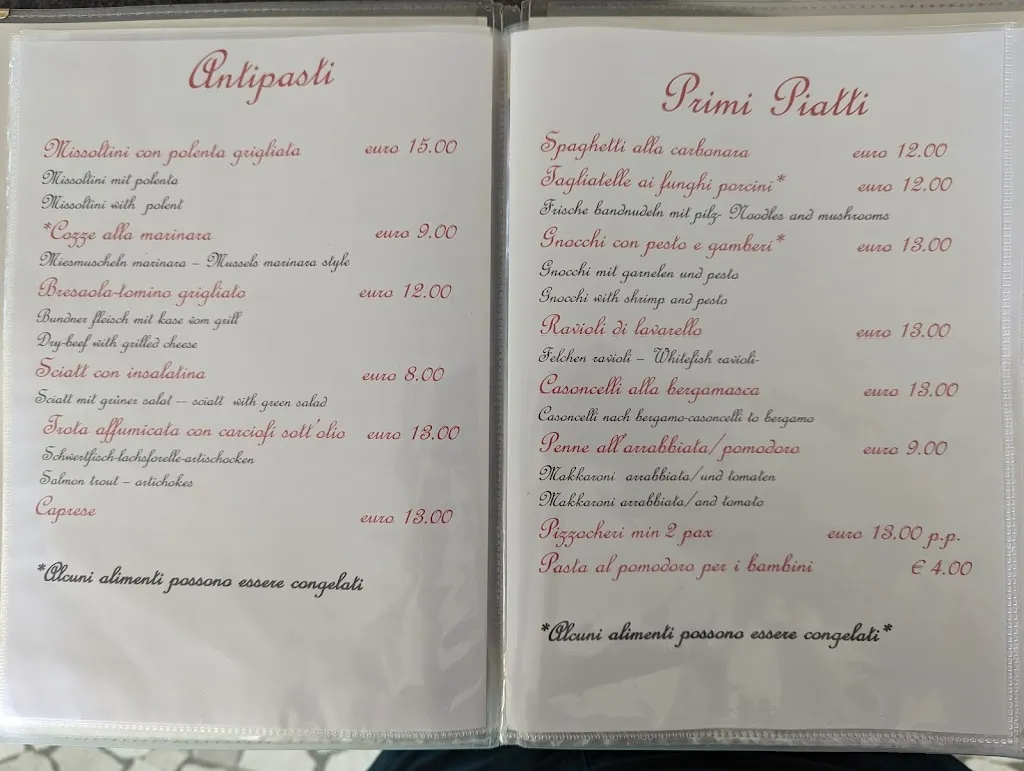 Antipasti
Missoltini con polenta grigliata euro 15.00
Missoltini mit polenta
Missoltini with polent
*Cozze alla marinara euro 9.00
Miesmuscheln marinara – Mussels marinara style
Bresaola-tomino grigliato euro 12.00
Bundner fleisch mit kase vom grill
Dry-beef with grilled cheese
Sciatt con insalatina euro 8.00
Sciatt mit grüner salat – sciatt with green salad
Trota affumicata con carciofi sott'olio euro 13.00
Schwertfisch-lachsforelle-artischocken
Salmon trout – artichokes
Caprese euro 13.00
*Alcuni alimenti possono essere congelati
Primi Piatti
Spaghetti alla carbonara euro 12.00
Tagliatelle ai funghi porcini* euro 12.00
Frische bandnudeln mit pilz- Noodles and mushrooms
Gnocchi con pesto e gamberi* euro 13.00
Gnocchi mit garnelen und pesto
Gnocchi with shrimp and pesto
Ravioli di lavarello euro 13.00
Felchen ravioli – Whitefish ravioli-
Casoncelli alla bergamasca euro 13.00
Casoncelli nach bergamo-casoncelli to bergamo
Penne all'arrabbiata/pomodoro euro 9.00
Makkaroni arrabbiata/und tomaten
Makkaroni arrabbiata/and tomato
Pizzocheri min 2 pax euro 13.00 p.p.
Pasta al pomodoro per i bambini € 4.00
*Alcuni alimenti possono essere congelati*